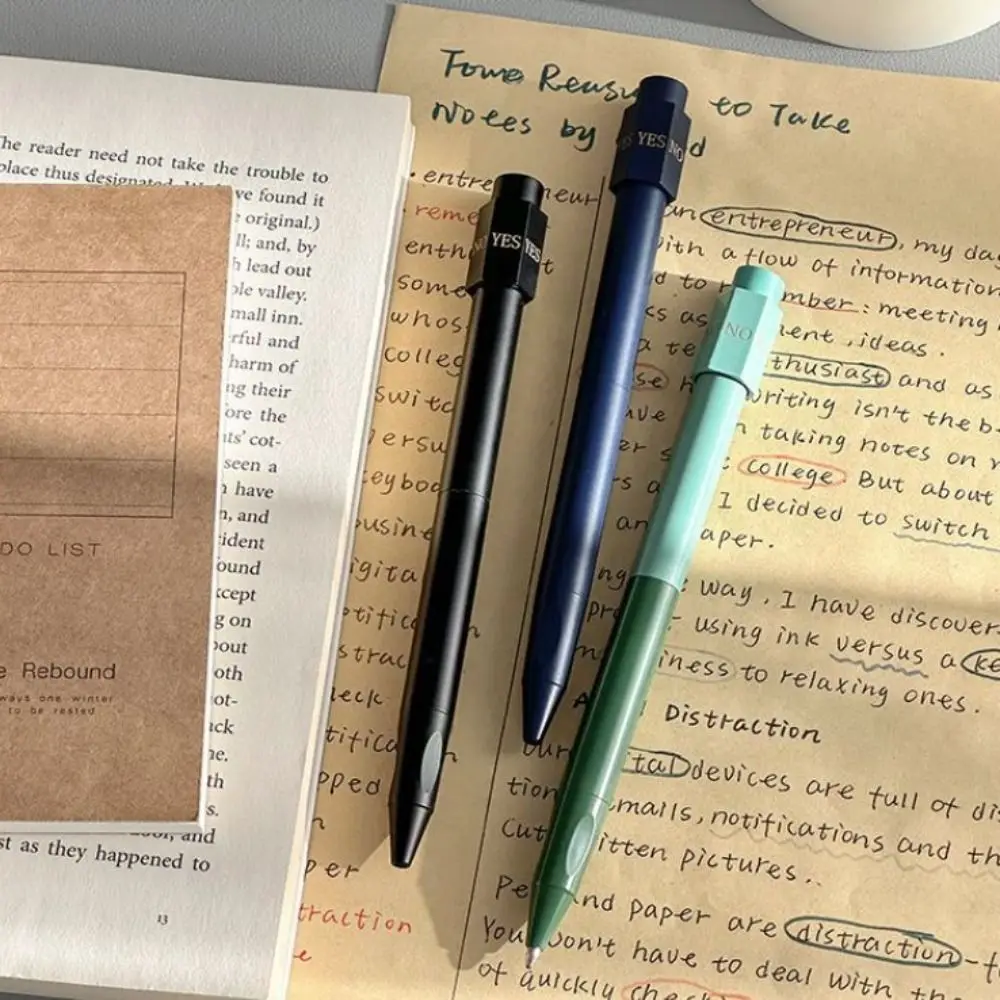 The reader need not take the trouble to
place thus designated. We have found it
original.)
ll; and, by
h lead out
ble valley.
mall inn.
rful and
harm of
ng their
ore the
ts' cot-
seen a
have
n, and
ident
ound
xcept
g on
bout
oth
ot-
ack
ne.
th
s.
door, and
st as they happened to
13
DO LIST
e Rebound
ways one winter
to be rested
Tome Reasu to Take
Notes by d
· entre neur
· reme
enth t
some
whos
colleg
switc
versu
eyboa
usine
igita
otific n
strac
heck
tifica
pped
n
per
traction
e
NO YES YES
YES NO
NO
an entrepreneur, my da
ith a flow of information
d to r mber: meeting
ks as ment, ideas.
a te thusiast and as
se h writing isn't the b
ave n taking notes on
er s college. But about
s a I decided to switch
an aper.
ng e way, I have discover
pro r using ink versus a ke
m iness to relaxing ones.
A Distraction
our ital devices are full of dis
tion mails, notifications and th
Cut itten pictures..
Pe nd paper are distraction-f
You on't have to deal with the
of quickly check